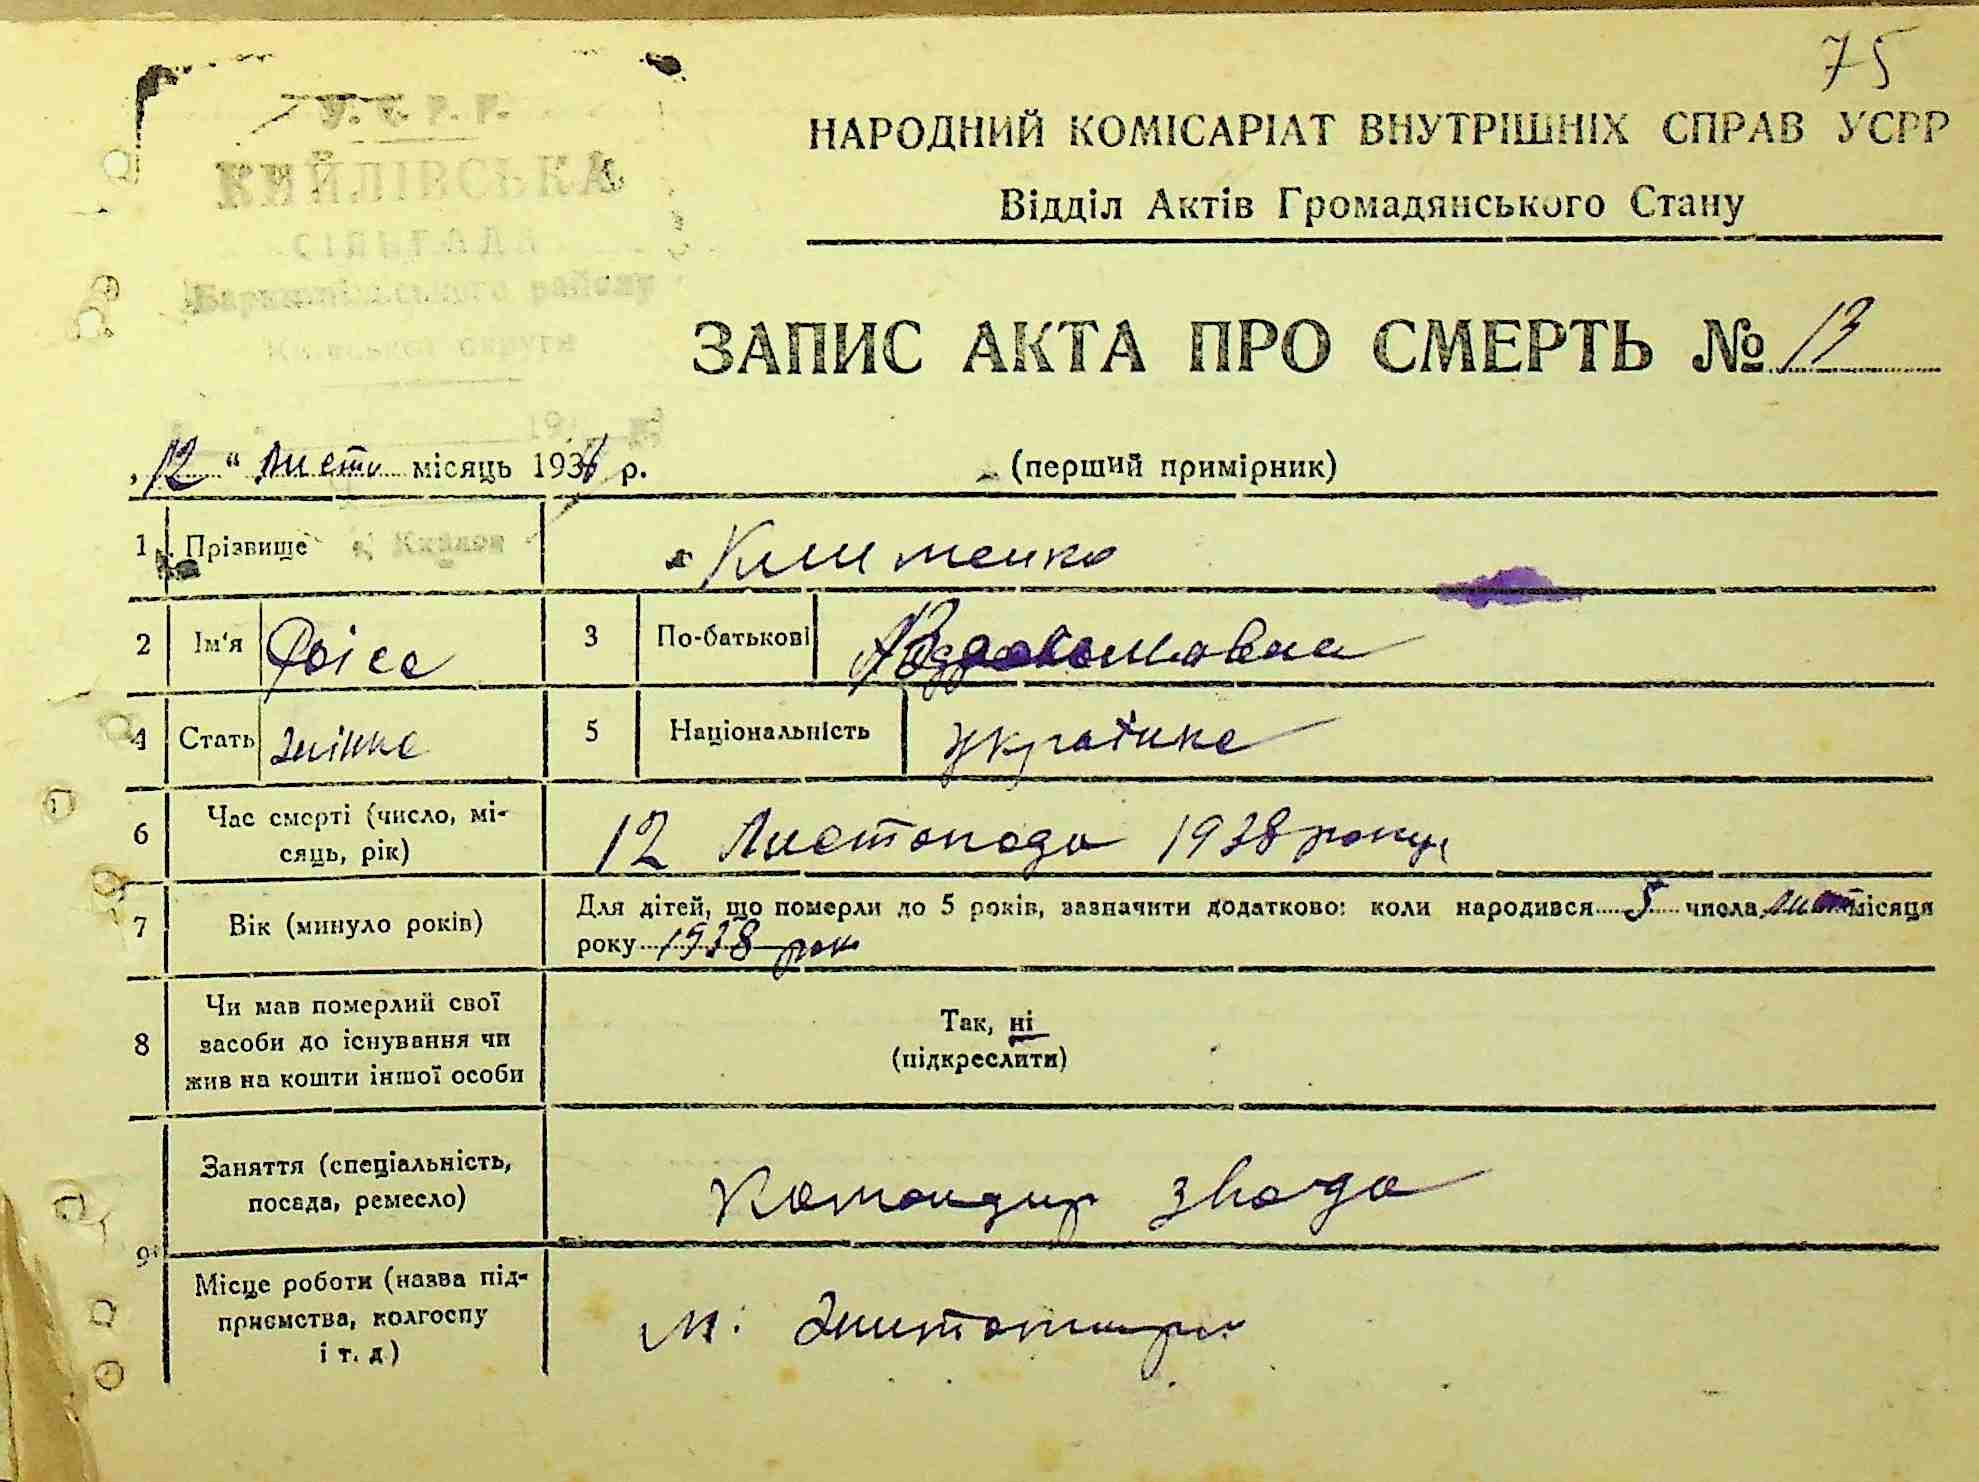 75
У. С. Р. Р.
КИЙЛІВСЬКА
СІЛЬРАДА
району
Київської округи
НАРОДНИЙ КОМІСАРІАТ ВНУТРІШНІХ СПРАВ УСРР
Відділ Актів Громадянського Стану
ЗАПИС АКТА ПРО СМЕРТЬ № 13
„12“ Листо місяць 1938 р.
(перший примірник)
1 Прізвище Клименко
2 Ім'я Раіса 3 По-батькові
4 Стать жінка 5 Національність українка
6 Час смерті (число, мі-
сяць, рік) 12 Листопада 1938 року
7 Вік (минуло років) Для дітей, що померли до 5 років, зазначити додатково: коли народився 5 числа лист місяця
року 1938 рок
8 Чи мав померлий свої
засоби до існування чи
жив на кошти іншої особи
Так, ні
(підкреслити)
9 Заняття (спеціальність,
посада, ремесло) Командир звода
Місце роботи (назва під-
приємства, колгоспу
і т. д.) м. Житомир